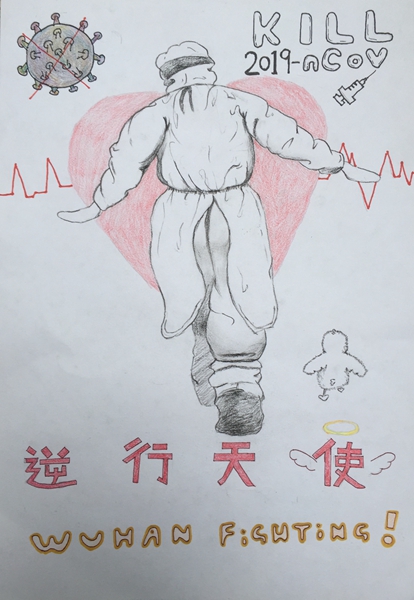 KiLL
2019-nCoV
逆行天使
WUHAN FiGHTiNG!